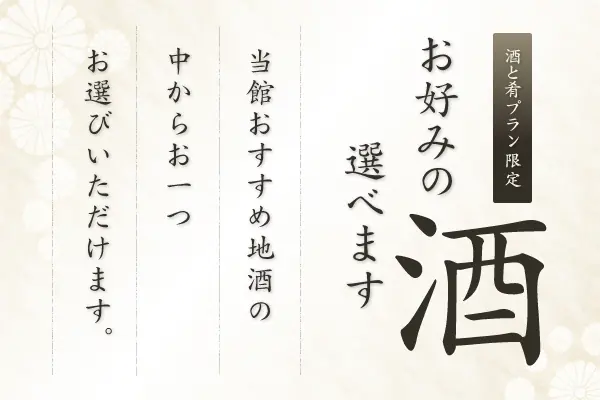 酒と肴プラン 限定
お好みの酒
選べます
当館おすすめ地酒の
中からお一つ
お選びいただけます。